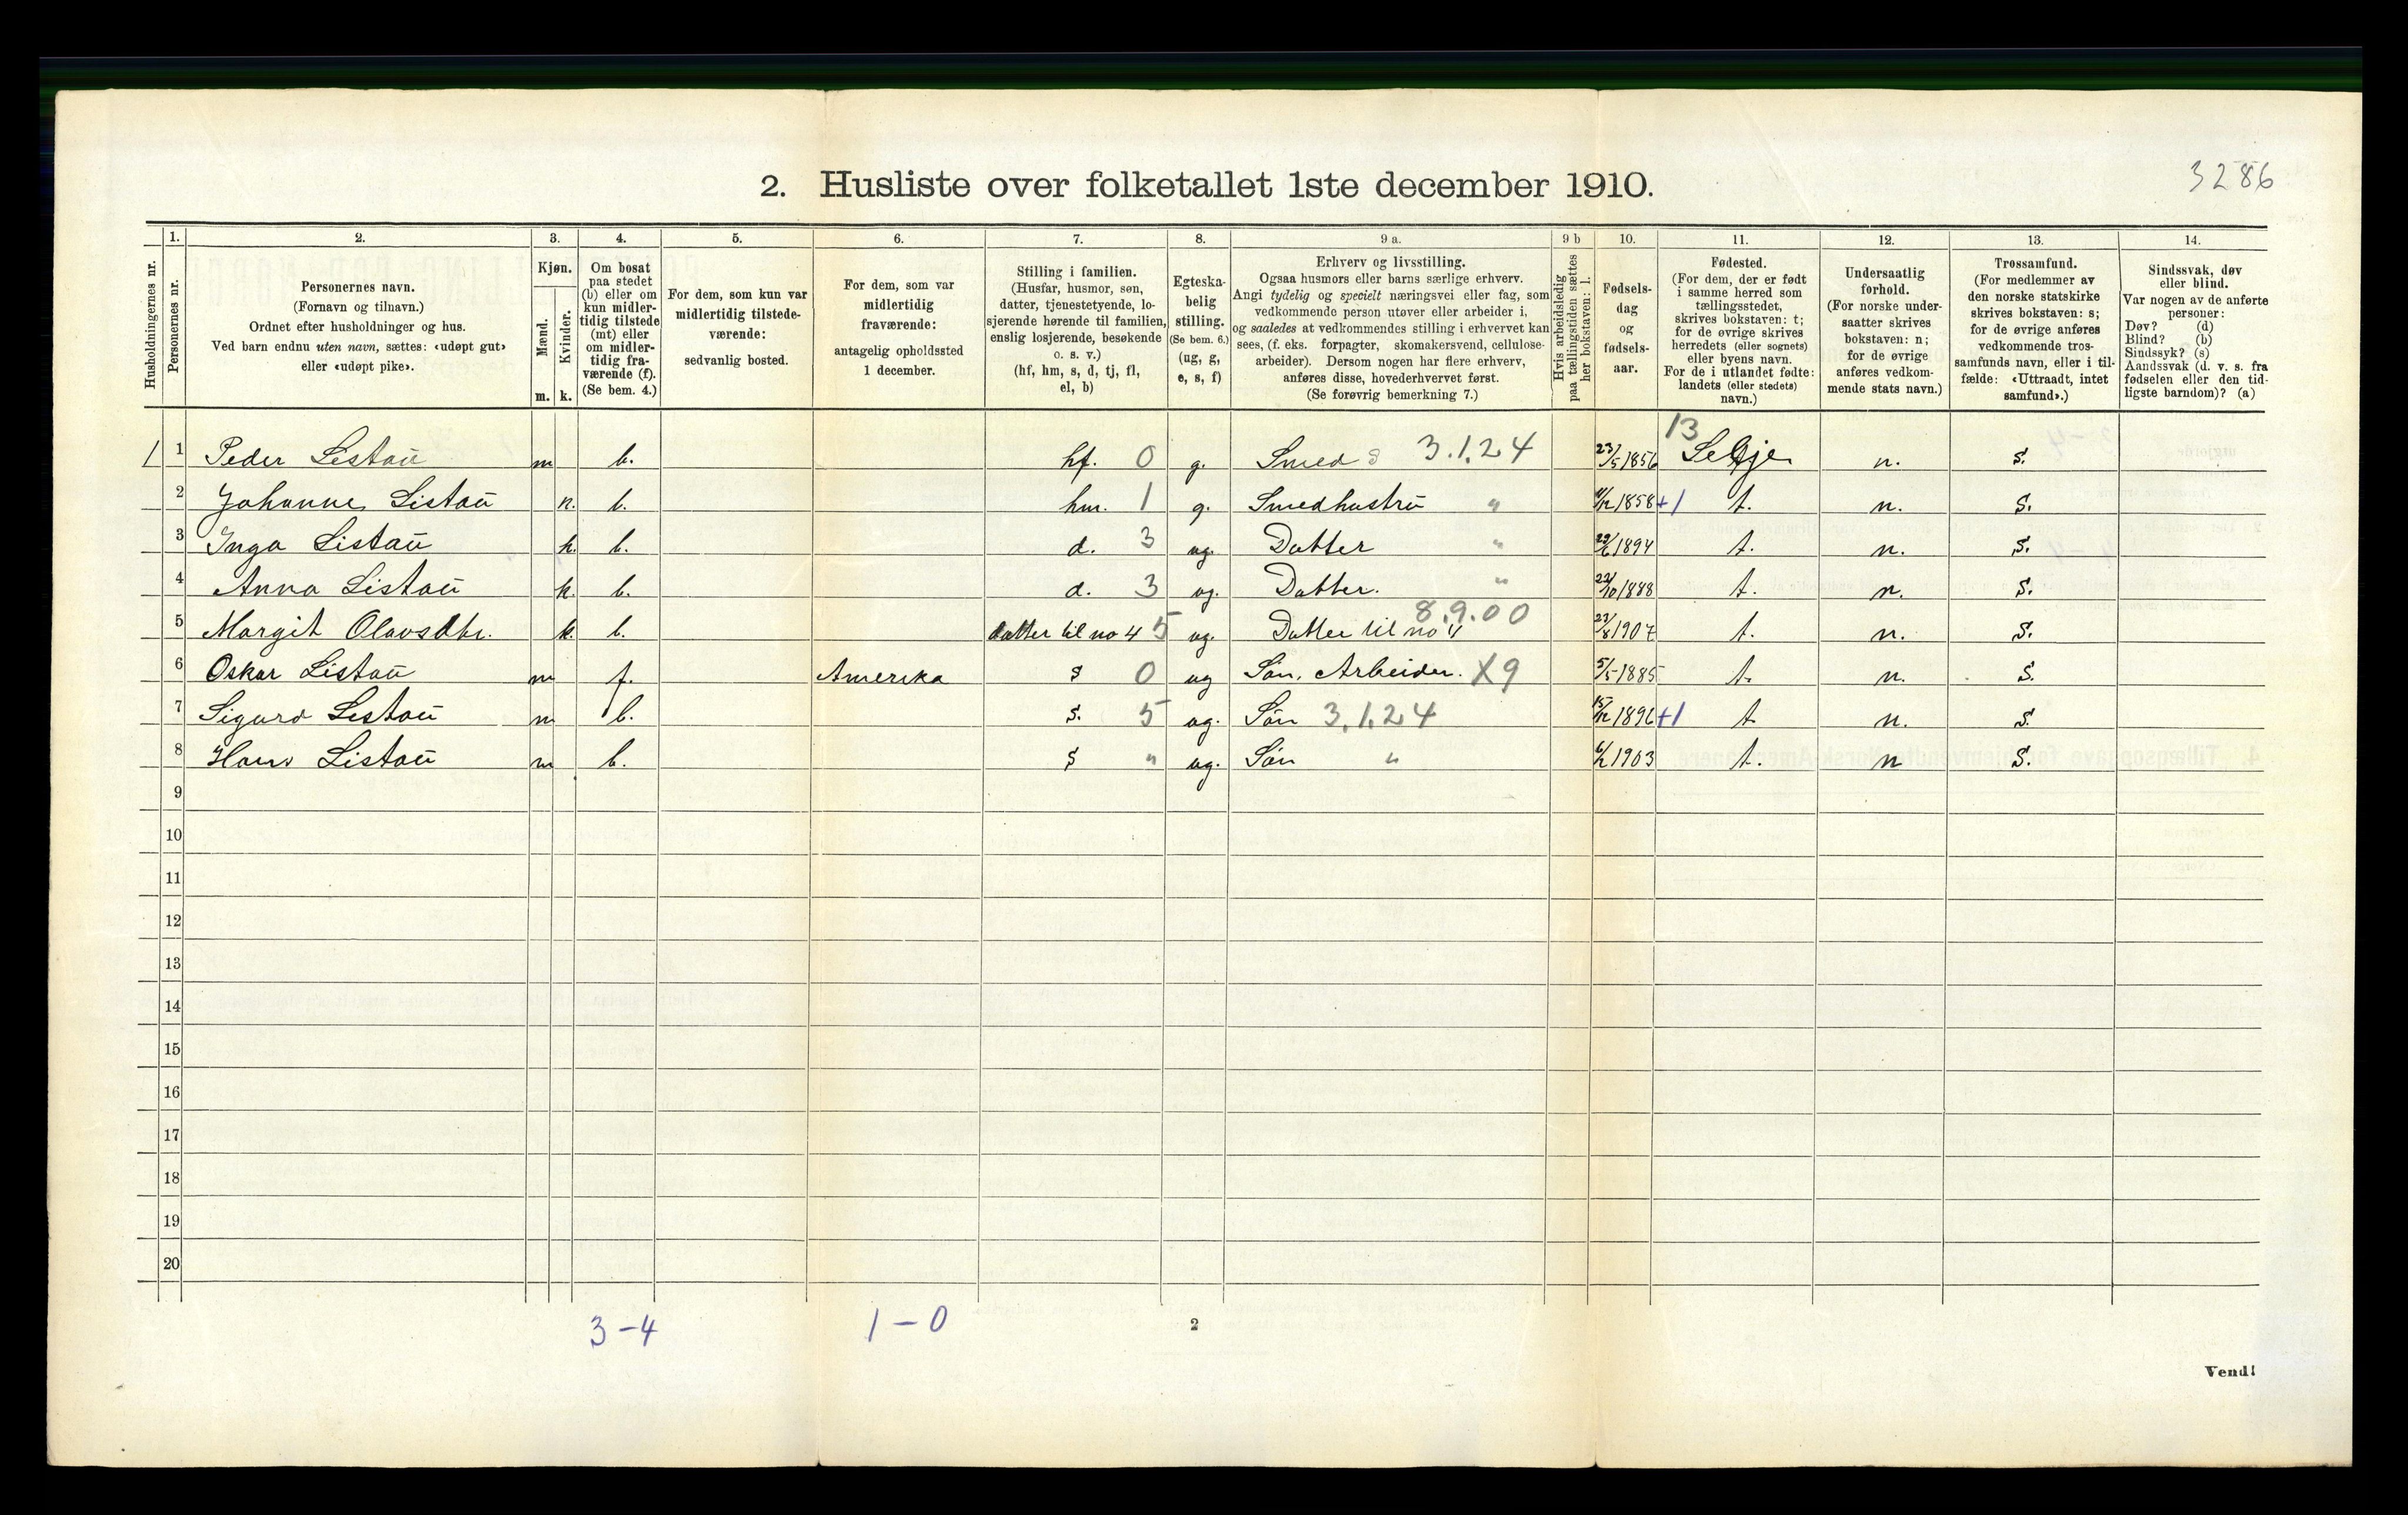 3286
2. Husliste over folketallet 1ste december 1910.
Husholdningernes nr.
1.
Personernes nr.
2.
Personernes navn.
(Fornavn og tilnavn.)
Ordnet efter husholdninger og hus.
Ved barn endnu uten navn, sættes: «udøpt gut»
eller «udøpt pike».
3.
Kjøn.
Mænd.
Kvinder.
m. k.
4.
Om bosat
paa stedet
(b) eller om
kun midler-
tidig tilstede
(mt) eller
om midler-
tidig fra-
værende (f).
(Se bem. 4.)
5.
For dem, som kun var
midlertidig tilstede-
værende:
sedvanlig bosted.
6.
For dem, som var
midlertidig
fraværende:
antagelig opholdssted
1 december.
7.
Stilling i familien.
(Husfar, husmor, søn,
datter, tjenestetyende, lo-
sjerende hørende til familien,
enslig losjerende, besøkende
o. s. v.)
(hf, hm, s, d, tj, fl,
el, b)
8.
Egteska-
belig
stilling.
(Se bem. 6.)
(ug, g,
e, s, f)
9 a.
Erhverv og livsstilling.
Ogsaa husmors eller barns særlige erhverv.
Angi tydelig og specielt næringsvei eller fag, som
vedkommende person utøver eller arbeider i,
og saaledes at vedkommendes stilling i erhvervet kan
sees, (f. eks. forpagter, skomakersvend, cellulose-
arbeider). Dersom nogen har flere erhverv,
anføres disse, hovederhvervet først.
(Se forøvrig bemerkning 7.)
9 b
Hvis arbeidsledig
paa tællingstiden sættes
her bokstaven: l.
10.
Fødsels-
dag
og
fødsels-
aar.
11.
Fødested.
(For dem, der er født
i samme herred som
tællingsstedet,
skrives bokstaven: t;
for de øvrige skrives
herredets (eller sognets)
eller byens navn.
For de i utlandet fødte:
landets (eller stedets)
navn.)
12.
Undersaatlig
forhold.
(For norske under-
saatter skrives
bokstaven: n;
for de øvrige
anføres vedkom-
mende stats navn.)
13.
Trossamfund.
(For medlemmer av
den norske statskirke
skrives bokstaven: s;
for de øvrige anføres
vedkommende tros-
samfunds navn, eller i til-
fælde: «Uttraadt, intet
samfund».)
14.
Sindssvak, døv
eller blind.
Var nogen av de anførte
personer:
Døv? (d)
Blind? (b)
Sindssyk? (s)
Aandssvak (d. v. s. fra
fødselen eller den tid-
ligste barndom)? (a)
13
1 1 Peder Listaū m b. hf. 0 g. Smed 3.1.24 23/5 1856 Selje n. s.
2 Johanne Listaū k. b. hm. 1 g. Smedhustrū " 1858 +1 t. n. S.
3 Inga Listaū k. b. d. 3 ug. Datter " 1894 t. n. S.
4 Anna Listaū k. b. d. 3 ug. Datter. " 22/10 1888 t. n. S.
8.9.00
5 Margit Olavsdtr. k. b. datter til no 4 5 ug. Datter til no 4 23/8 1907 t. n. S.
6 Oskar Listaū m f. Amerika s 0 ug Søn, Arbeider. X9 5/5 1885 t. n. S.
7 Sigurd Listaū m b. s. 5 ug. Søn 3.1.24 15/12 1896 +1 t n. S.
8 Hans Listaū m b. s " ug. Søn " 1903 t. n S.
9
10
11
12
13
14
15
16
17
18
19
20
3-4 1-0 2
Vend!